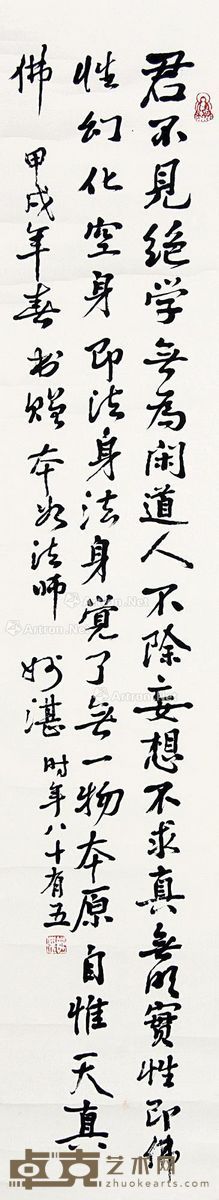 君不見绝学無為闲道人不除妄想不求真無明實性即佛
性幻化空身即法身法身覚了無一物本原自惟天真
佛
甲戌年春书赠本如法师妙湛时年八十有五
Artron.Net
卓克艺术网
www.zhuokearts.com